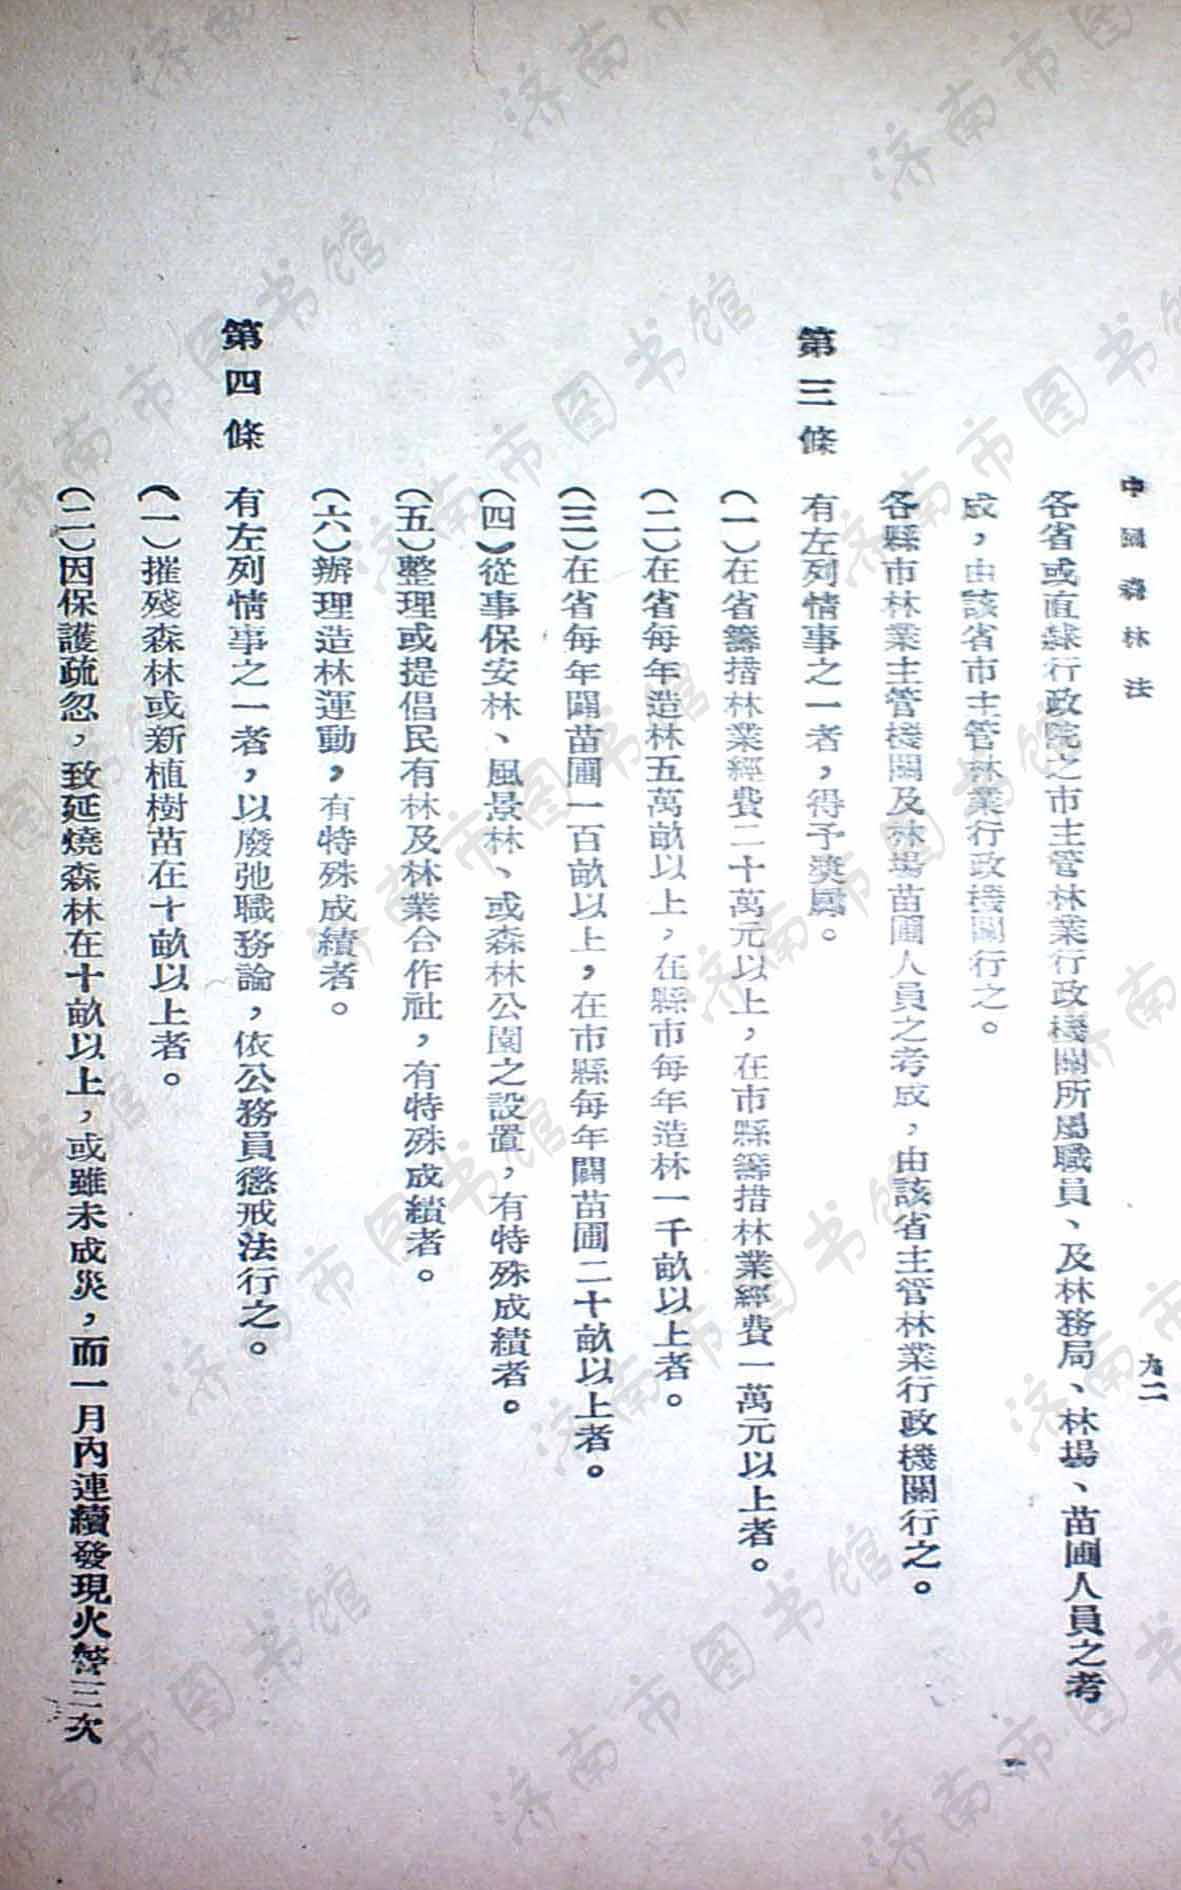 中國森林法
九二
各省或直隸行政院之市主管林業行政機關所屬職員、及林務局、林場、苗圃人員之考
成，由該省市主管林業行政機關行之。
各縣市林業主管機關及林場苗圃人員之考成，由該省主管林業行政機關行之。
第三條　有左列情事之一者，得予獎勵。
（一）在省籌措林業經費二十萬元以上，在市縣籌措林業經費一萬元以上者。
（二）在省每年造林五萬畝以上，在縣市每年造林一千畝以上者。
（三）在省每年闢苗圃一百畝以上，在市縣每年闢苗圃二十畝以上者。
（四）從事保安林、風景林、或森林公園之設置，有特殊成績者。
（五）整理或提倡民有林及林業合作社，有特殊成績者。
（六）辦理造林運動，有特殊成績者。
第四條　有左列情事之一者，以廢弛職務論，依公務員懲戒法行之。
（一）摧殘森林或新植樹苗在十畝以上者。
（二）因保護疏忽，致延燒森林在十畝以上，或雖未成災，而一月內連續發現火警三次
济南市图书馆